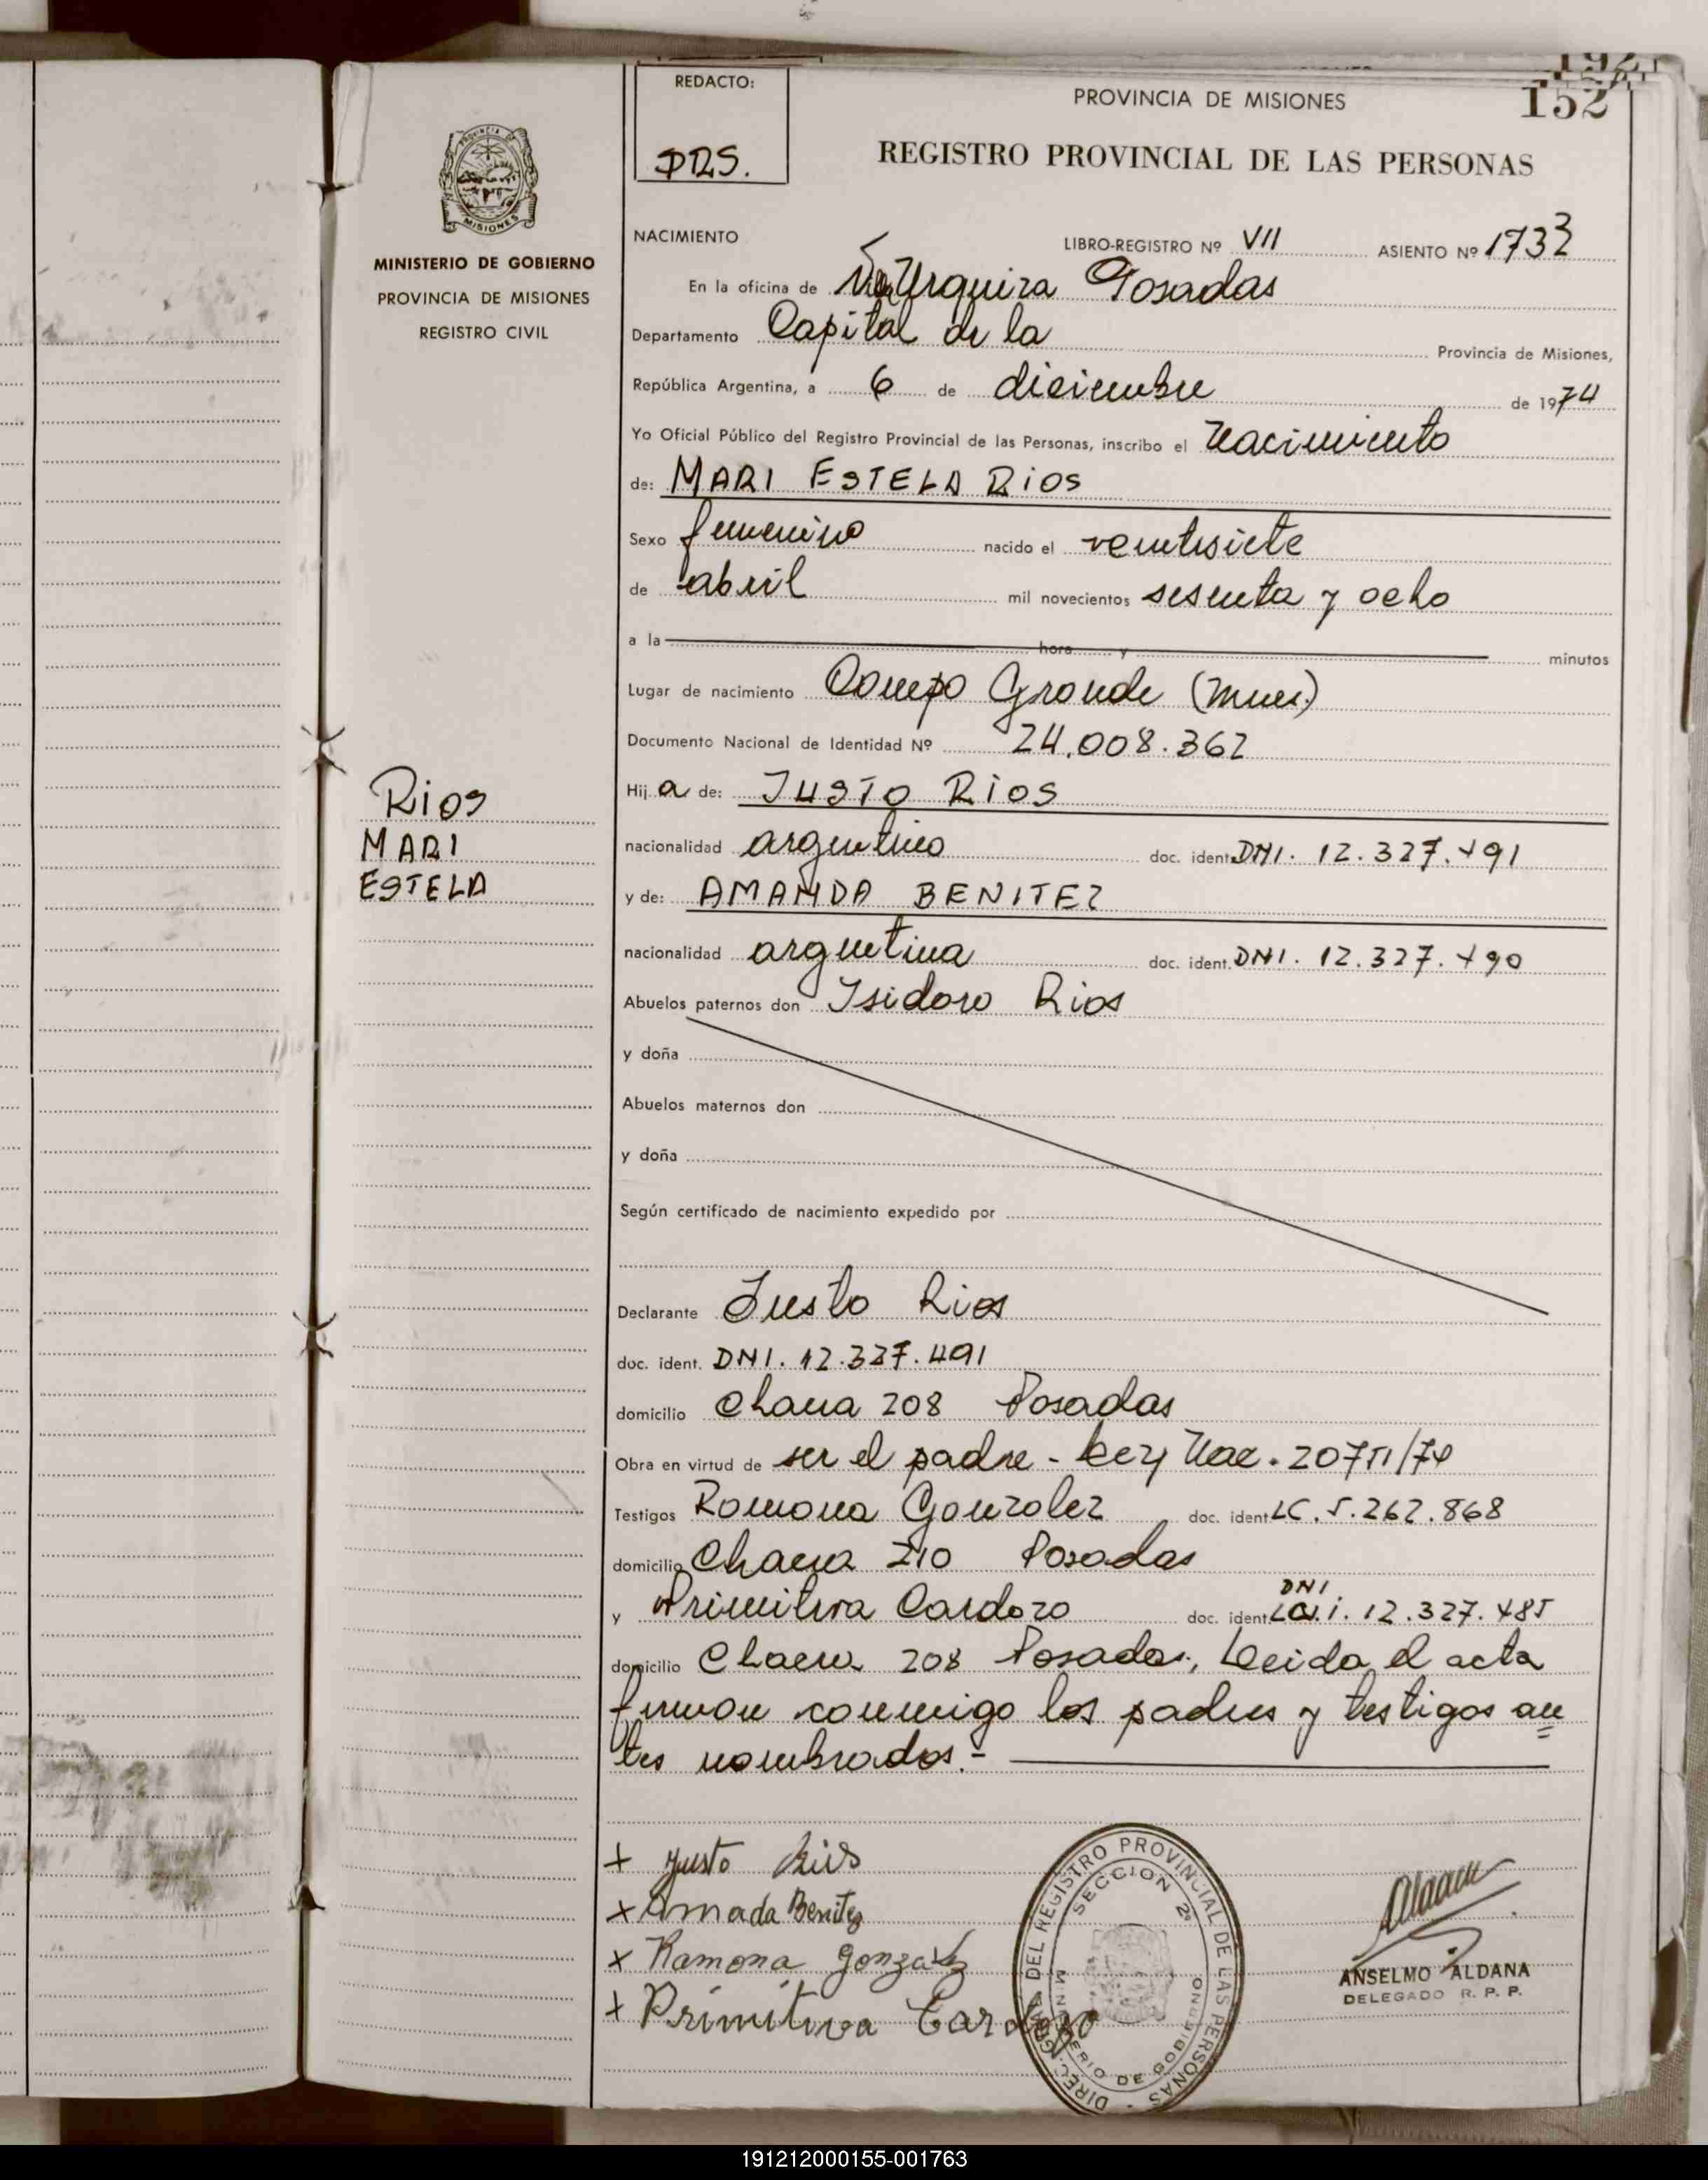 192
152
REDACTO:
DRS.
PROVINCIA DE MISIONES
REGISTRO PROVINCIAL DE LAS PERSONAS
PROVINCIA DE
MISIONES
MINISTERIO DE GOBIERNO
PROVINCIA DE MISIONES
REGISTRO CIVIL
NACIMIENTO LIBRO-REGISTRO Nº VII ASIENTO Nº 1733
En la oficina de Urquiza Posadas
Departamento Capital de la Provincia de Misiones,
República Argentina, a 6 de diciembre de 1974
Yo Oficial Público del Registro Provincial de las Personas, inscribo el Nacimiento
de: MARI ESTELA RIOS
Sexo femenino nacido el veintisiete
de abril mil novecientos sesenta y ocho
a la hora y minutos
Lugar de nacimiento Campo Grande (Mnes.)
Documento Nacional de Identidad Nº 24.008.362
Rios
MARI
ESTELA
Hija de: JUSTO RIOS
nacionalidad argentino doc. ident. DNI. 12.327.491
y de: AMANDA BENITEZ
nacionalidad argentina doc. ident. DNI. 12.327.490
Abuelos paternos don Isidoro Rios
y doña
Abuelos maternos don
y doña
Según certificado de nacimiento expedido por
Declarante Justo Rios
doc. ident. DNI. 12.327.491
domicilio Chacra 208 Posadas
Obra en virtud de ser el padre - Ley Nac. 20751/74
Testigos Ramona Gonzalez doc. ident LC. 5.262.868
domicilio Chacra 210 Posadas
DNI
y Primitiva Cardozo doc. ident 12.327.485
domicilio Chacra 208 Posadas, Leida el acta
firman conmigo los padres y testigos an
tes nombrados.-
x Justo Rios
x Amada Benitez
x Ramona Gonzalez
x Primitiva Cardozo
DIREC. GRAL DEL REGISTRO PROVINCIAL DE LAS PERSONAS
SECCION 2ª
MINISTERIO DE GOBIERNO
ANSELMO ALDANA
DELEGADO R. P. P.
191212000155-001763